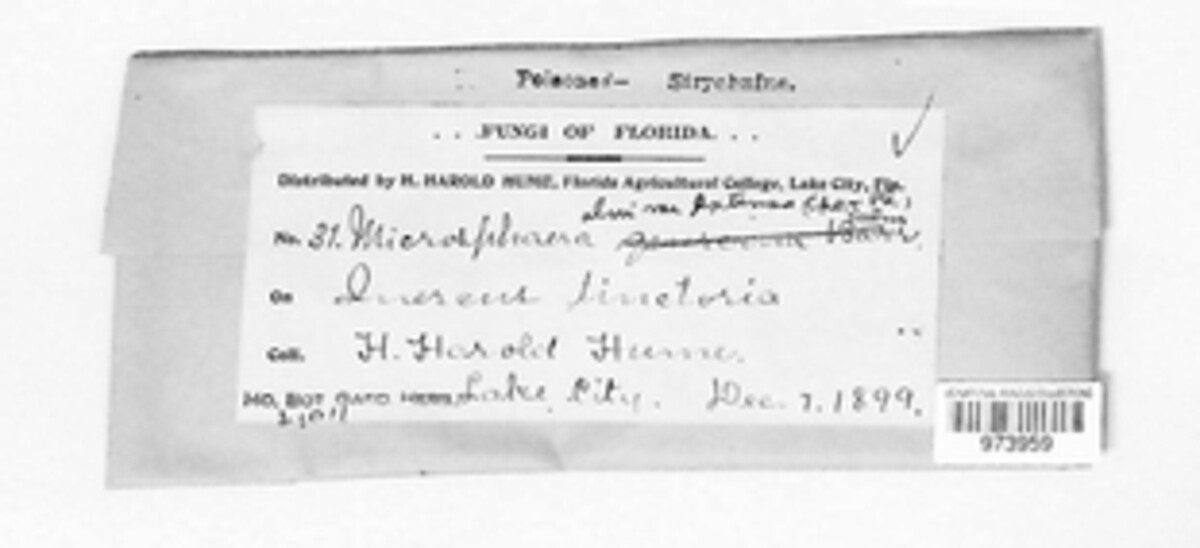 Poisoned— Strychnine.
. . FUNGI OF FLORIDA. . .
Distributed by H. HAROLD HUME, Florida Agricultural College, Lake City, Fla.
alni var
No. 31. Microsphaera
On Quercus tinctoria
Coll. H. Harold Hume.
MO. BOT. GARD. HERB. Lake City. Dec. 7. 1899.
973959